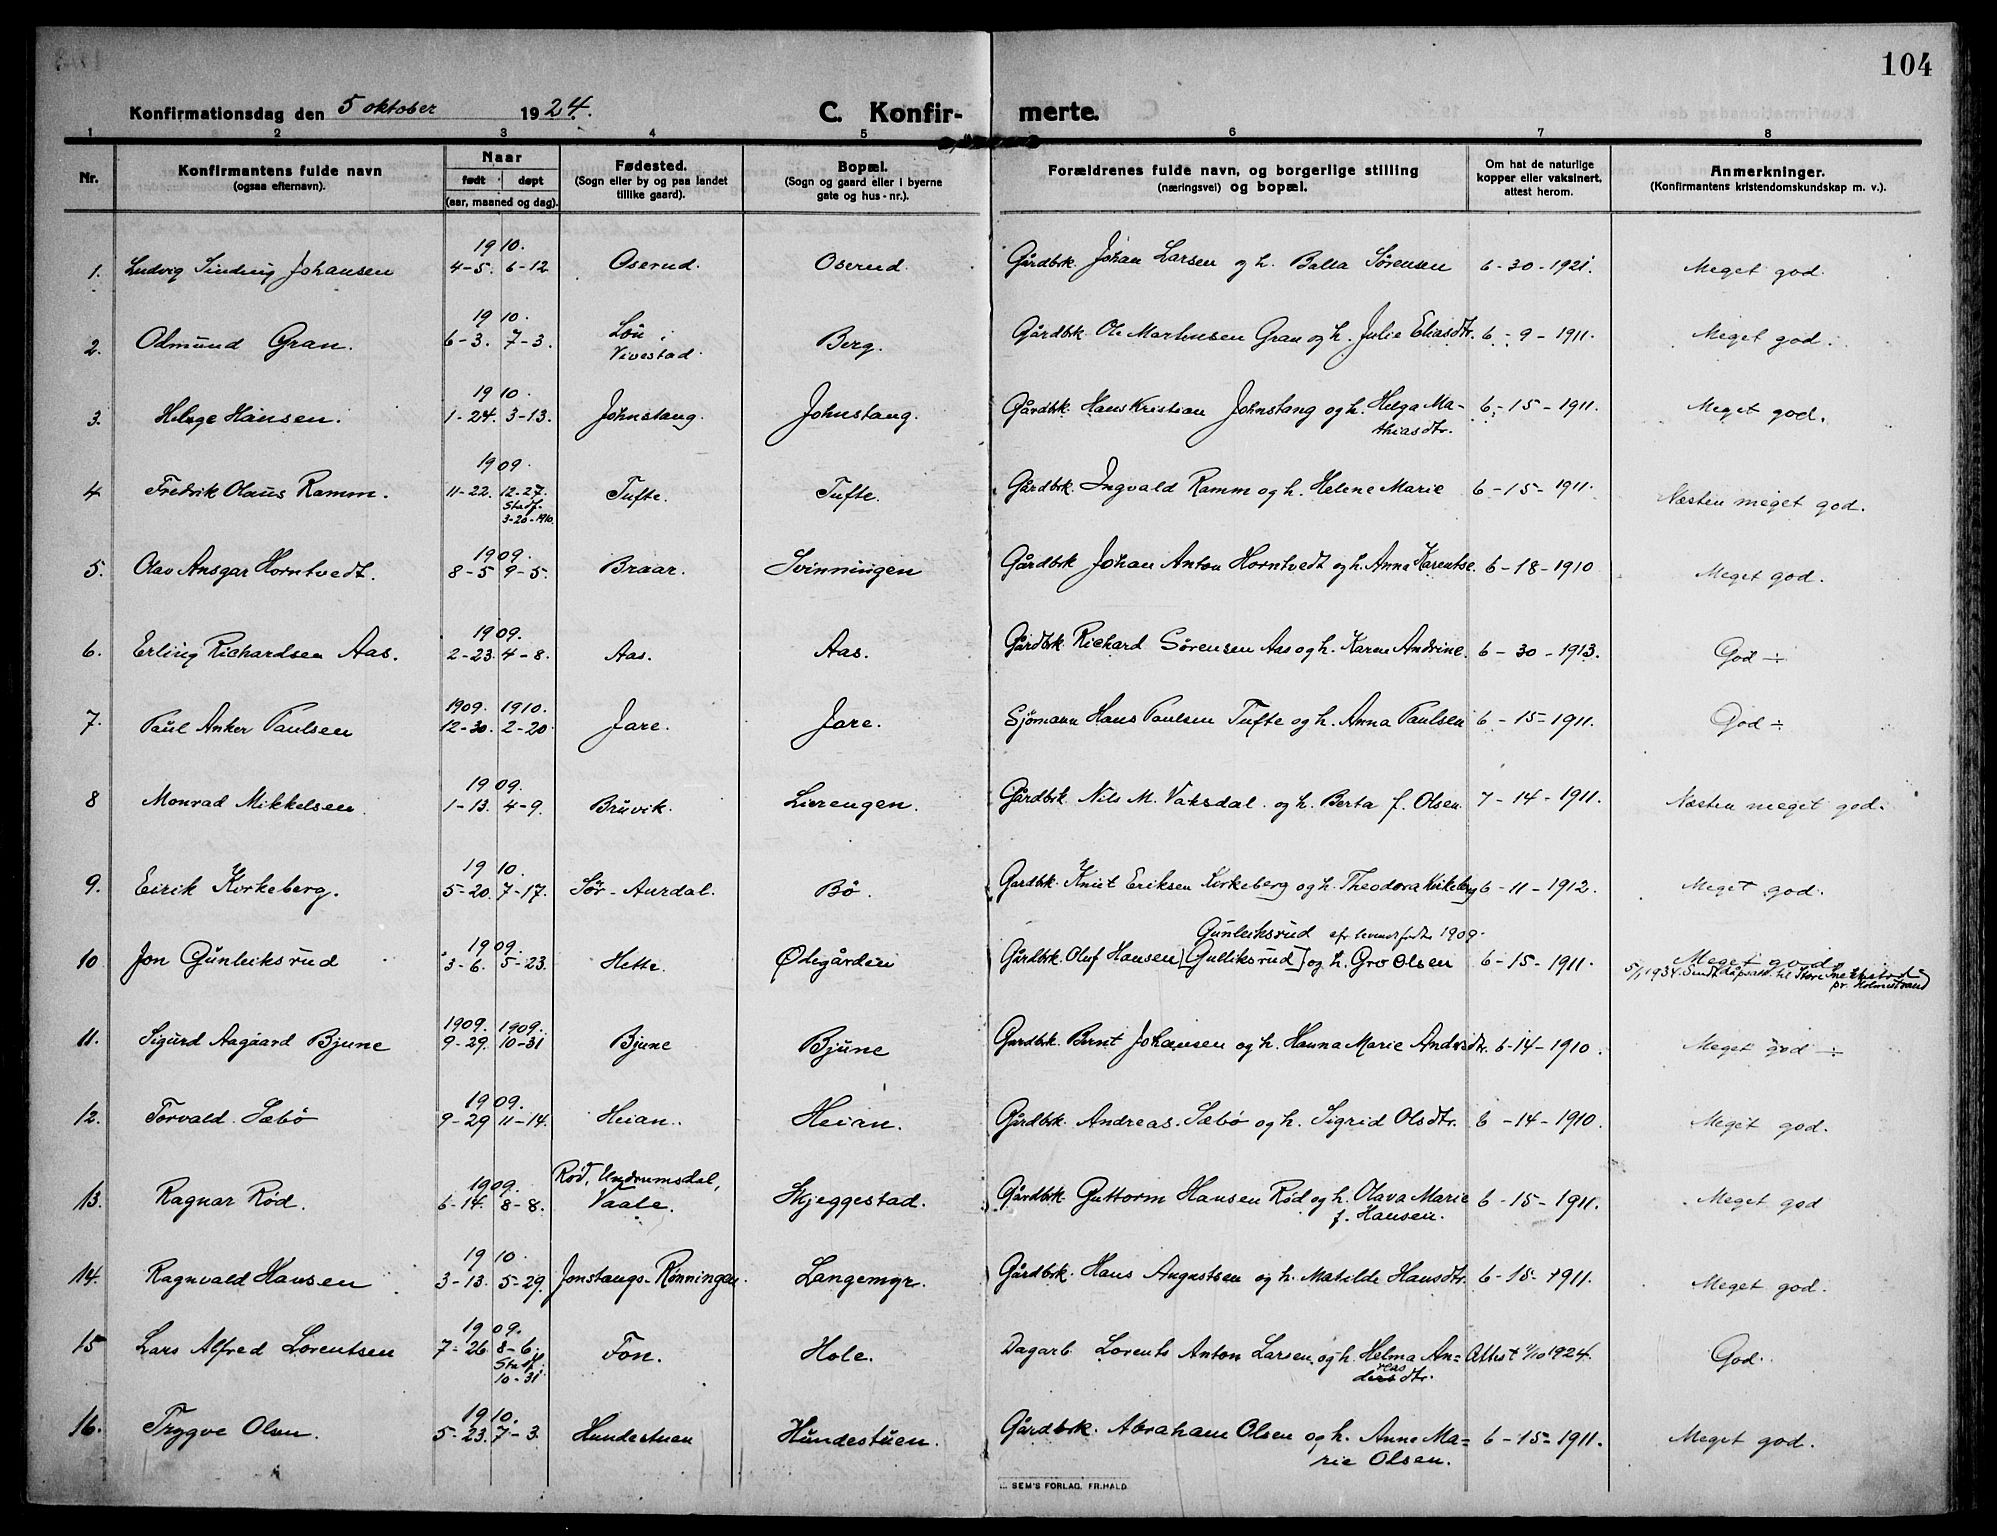 104
Konfirmationsdag den 5 oktober 1924. C. Konfir- merte.
1 2 3 4 5 6 7 8
Nr. Konfirmantens fulde navn (ogsaa efternavn). Naar født døpt (aar, maaned og dag). Fødested. (Sogn eller by og paa landet tillike gaard). Bopæl. (Sogn og gaard eller i byerne gate og hus-nr.). Forældrenes fulde navn, og borgerlige stilling (næringsvei) og bopæl. Om hat de naturlige kopper eller vaksinert, attest herom. Anmerkninger. (Konfirmantens kristendomskundskap m. v.).
1910.
1. Ludvig Sinding Johansen 4-5. 6-12 Oserud. Oserud. Gårdbk. Johan Larsen og h. Balla Sørensen 6-30-1921. Meget god.
1910.
2. Odmund Gran. 6-3. 7-3. Løu i Vivestad. Berg. Gårdbk. Ole Martinsen Gran og h. Julie Eliasdtr. 6-9-1911. Meget god.
1910.
3. Helge Hansen. 1-24. 3-13. Johnstang. Johnstang. Gårdbk. Hans Kristian Johnstang og h. Helga Ma- 6-15-1911. Meget god.
thiasdtr.
1909.
4 Fredrik Olaus Ramm. 11-22. 12-27. Tufte. Tufte. Gårdbk. Ingvald Ramm og h. Helene Marie 6-15-1911. Næsten meget god.
Stadf.
3-20-1910.
1909.
5. Olav Ansgar Horntvedt. 8-5 9-5. Braar. Svinningen Gårdbk Johan Anton Horntvedt og h. Anna Karentse. 6-18-1910 Meget god.
1909.
6. Erling Richardsen Aas. 2-23. 4-8. Aas. Aas. Gårdbk Richard Sørensen Aas og h. Karen Andrine. 6-30-1913. God ÷
1909. 1910.
7. Paul Anker Paulsen 12-30. 2-20. Jare. Jare. Sjömann Hans Paulsen Tufte og h. Anna Paulsen 6-15-1911. God ÷
1909.
8 Monrad Mikkelsen. 1-13. 4-9. Bruvik. Lierengen. Gårdbk. Nils M. Vaksdal og h. Berta f. Olsen. 7-14-1911. Næsten meget god.
1910.
9. Eirik Kirkeberg. 5-20. 7-17. Sør-Aurdal. Bö. Gardbk. Knut Eriksen Kirkeberg og h. Theodora Kirkeberg 6-11-1912. Meget god.
Gunleiksrud efr levendefødte 1909.
1909.
10 Jon Gunleiksrud 3-6. 5-23. Hette. Ødegården Gårdbk. Oluf Hansen [Gulliksrud] og h. Gro Olsen 6-15-1911. Meget god.
5/1 1934. Sendt dåpsatt. til Store Snekkestad
pr. Holmestrand
1909. 1909.
11. Sigurd Aagaard Bjune 9-29. 10-31 Bjune Bjune Gardbk. Bernt Johansen og h. Hanna Marie Andrsdtr. 6-14-1910. Meget god ÷
1909.
12. Torvald Sæbö 9-29 11-14. Heian. Heian. Gårdbk. Andreas Sæbö og h. Sigrid Olsdtr. 6-14-1910. Meget god.
1909. Rød, Undrumsdal,
13. Ragnar Rød. 6-14. 8-8. Vaale. Skjeggestad. Gårdbk Guttorm Hansen Rød og h. Olava Marie 6-15-1911. Meget god
f. Hansen.
1910.
14. Ragnvald Hansen 3-13. 5-29. Jonstangs-Rønningen. Langemyr. Gårdbk. Hans Augustsen og h. Matilde Hansdtr. 6-15-1911. Meget god.
1909.
15 Lars Alfred Lorentsen 7-26 8-6. Fon. Hole. Dagarb. Lorents Anton Larsen, og h. Helma An- Attest 1/10 1924. God.
Stadf. reas
10-31 dersdtr.
1910.
16. Trygve Olsen. 5-23. 7-3. Hundestuen Hundestuen. Gårdbrk. Abraham Olsen og h. Anne Ma- 6-15-1911. Meget god.
rie Olsen.
SEM'S FORLAG, FR.HALD